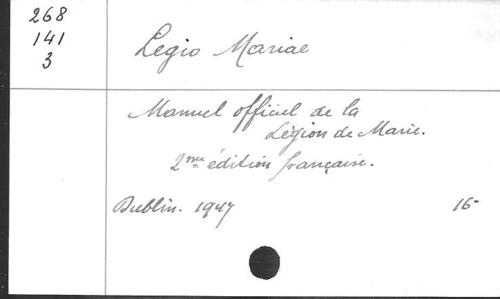 268
141
3
Legio Mariae
Manuel officiel de la
Légion de Marie.
2me édition française.
Dublin. 1947
16-